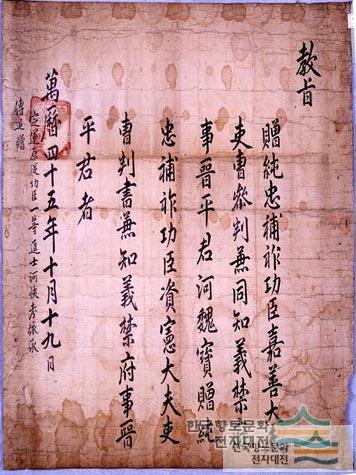 教旨
贈純忠補祚功臣嘉善大
吏曹參判兼同知義禁
事晉平君河魏寶贈純
忠補祚功臣資憲大夫吏
曹判書兼知義禁府事晉
平君者
萬曆四十五年十月十九日
定運原從功臣一等進士河 考依承
傳追贈
한국향토문화
전자대전
한국향토문화
전자대전